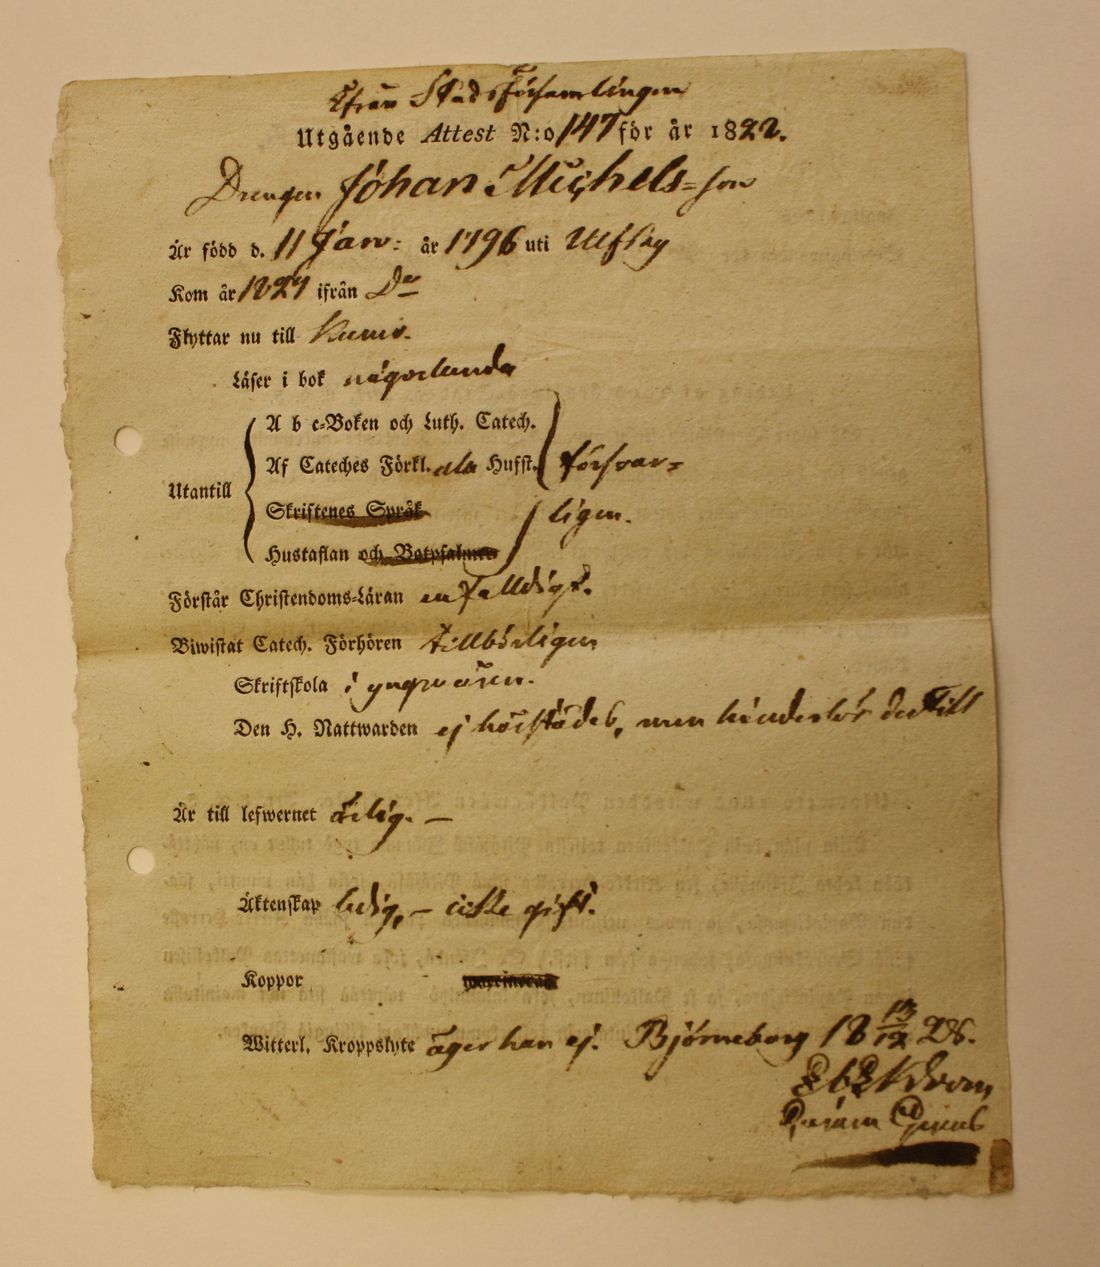 Ifrån Stads Församlingen
Utgående Attest N:o 147 för år 1822.
Drengen Johan Michels=son
Är född d. 11 Janv: år 1796 uti Ulfsby
Kom år 1821 ifrån D:o
Flyttar nu till Kumo.
Läser i bok någorlunda
A b c=Boken och Luth. Catech.
Af Cateches Förkl. Hufst. försvar=
Utantill
Skriftenes Språk ligen.
Hustaflan och Botpsalmer
Förstår Christendoms=Läran enfalldigt.
Biwistat Catech. Förhören tillbörligen
Skriftskola i yngre åren.
Den H. Nattwarden ej härstädes, men hinderlös dertill
Är till lefwernet ärlig. —
Äktenskap ledig, — icke gift.
Koppor
Witterl. Kroppslyte äger han ej. Björneborg 18 13/12 28.